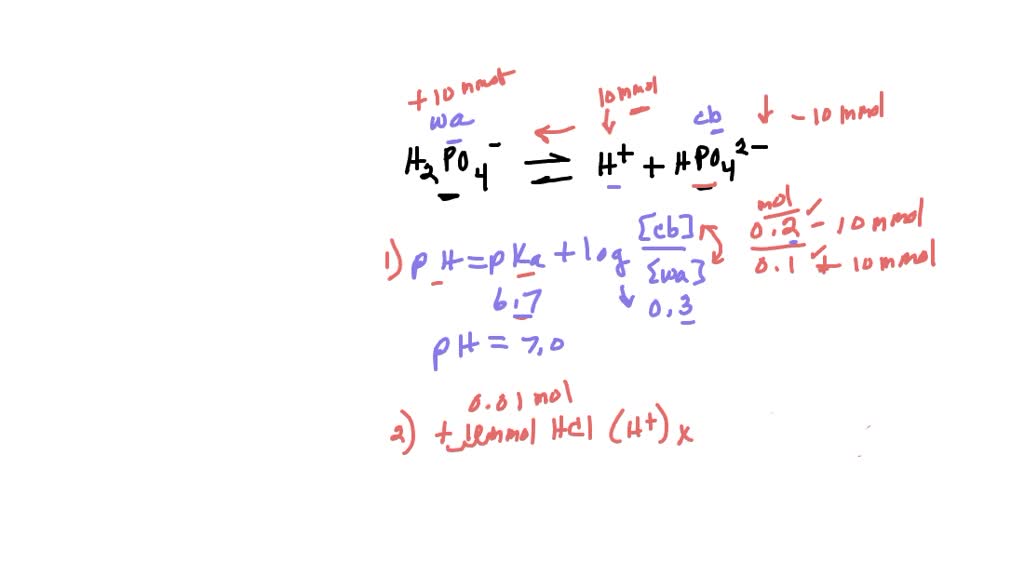 +10 mmol 10 mmol
wa cb ↓ - 10 mmol
H₂PO₄⁻ ⇌ H⁺ + HPO₄²⁻
mol
1) pH = pKa + log [cb]/[wa] 0.2 - 10 mmol / 0.1 + 10 mmol
6.7 0.3
pH = 7.0
0.01 mol
2) + 10 mmol HCl (H⁺) x